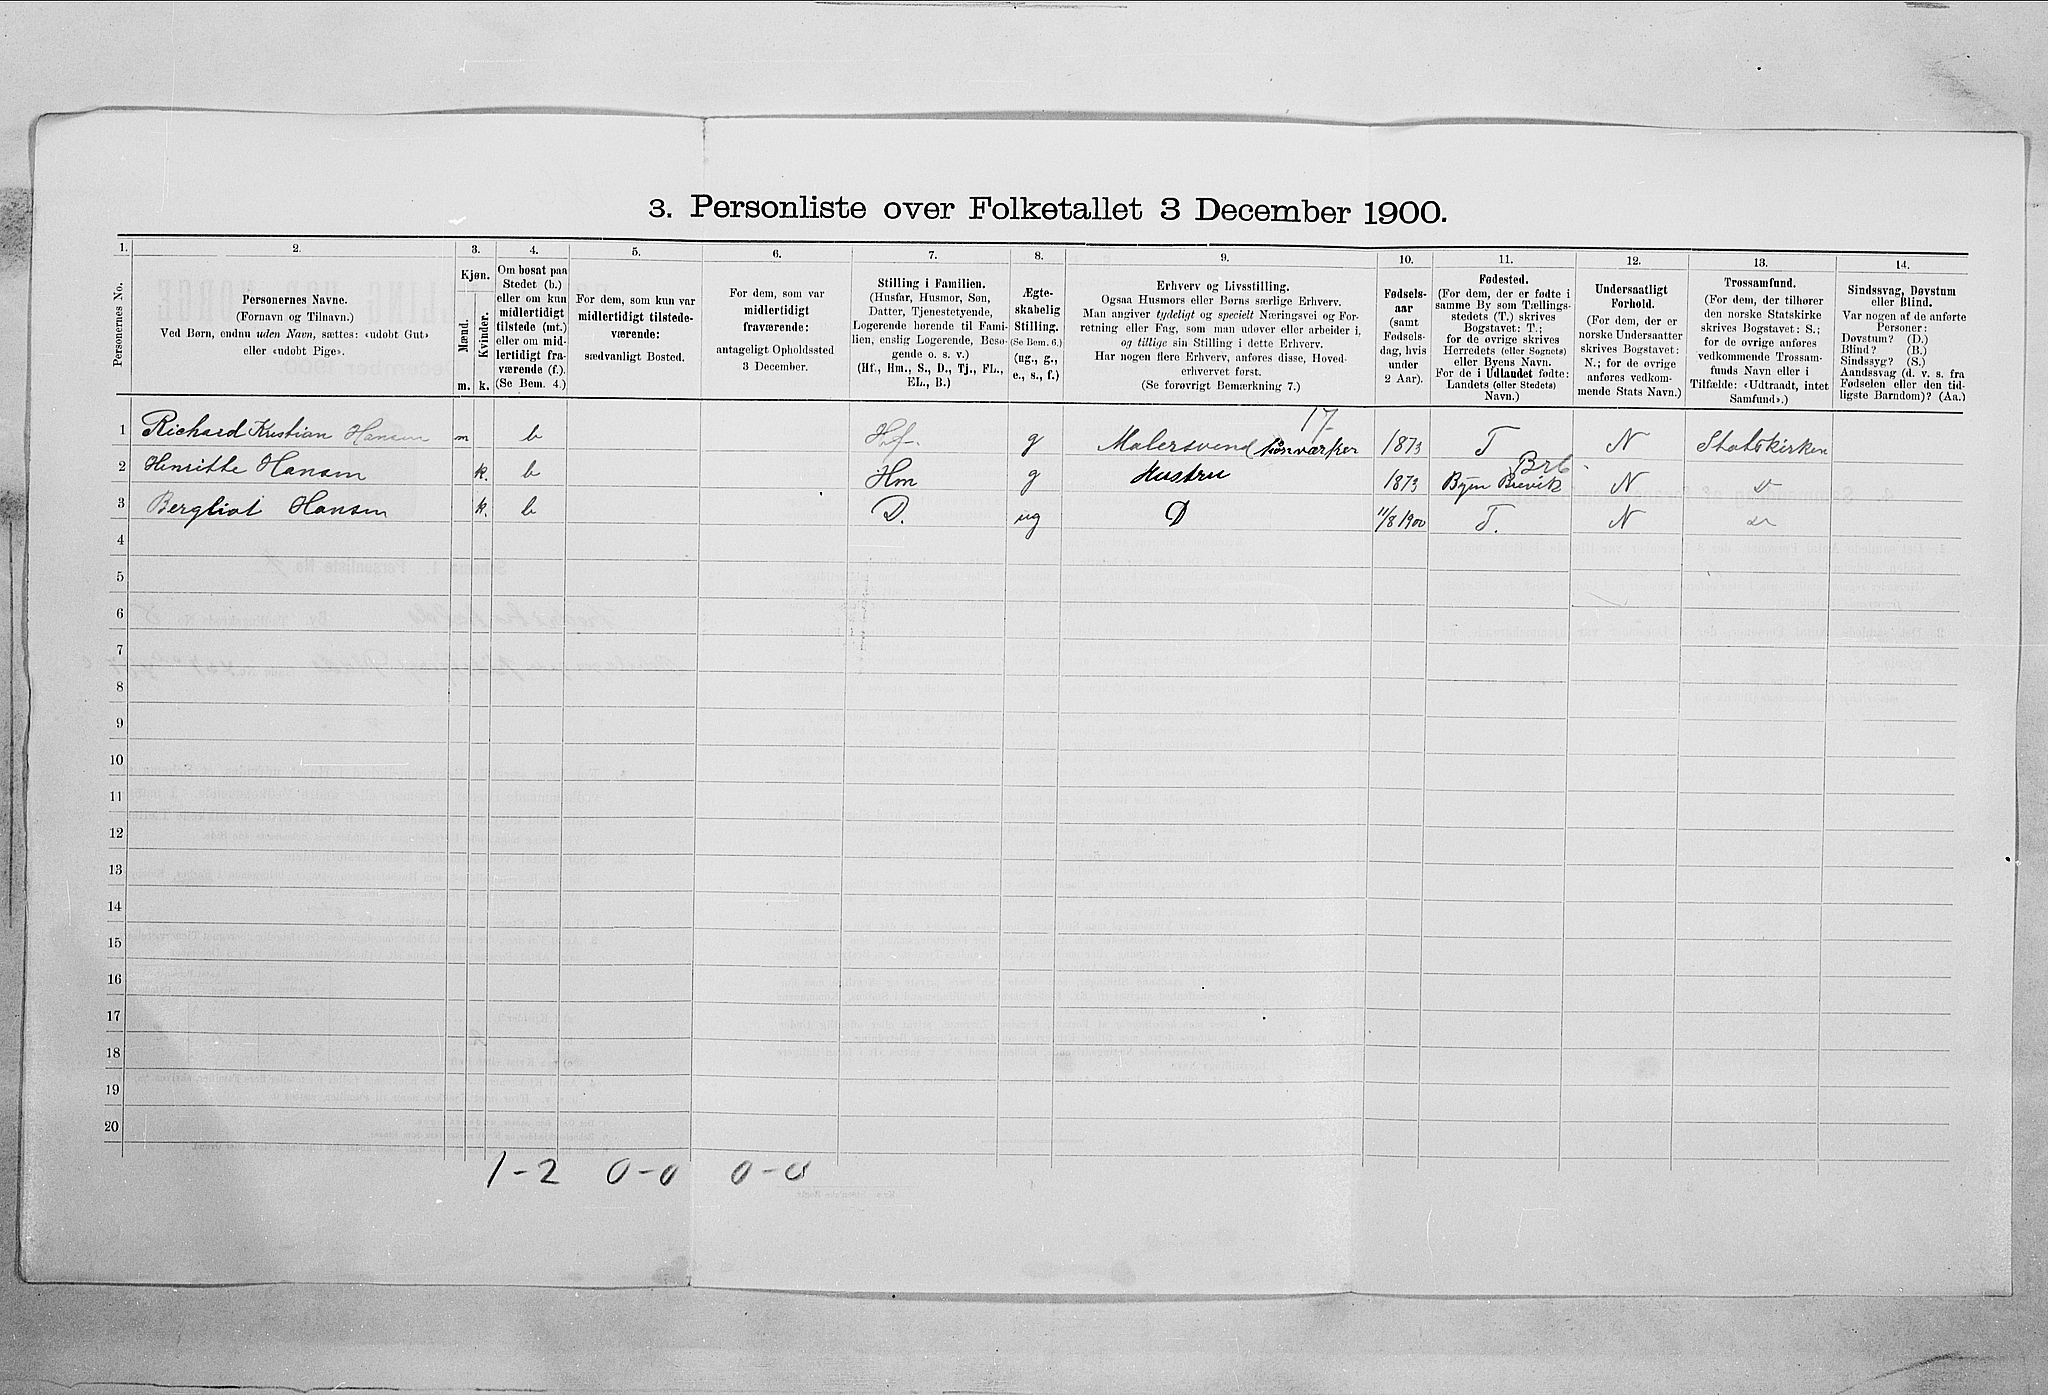 3. Personliste over Folketallet 3 December 1900.
1. 2. 3. 4. 5. 6. 7. 8. 9. 10. 11. 12. 13. 14.
Personernes No.
Personernes Navne.
(Fornavn og Tilnavn.)
Ved Børn, endnu uden Navn, sættes: «udøbt Gut»
eller «udøbt Pige».
Kjøn.
Mænd.
Kvinder.
m. k.
Om bosat paa
Stedet (b.)
eller om kun
midlertidigt
tilstede (mt.)
eller om mid-
lertidigt fra-
værende (f.).
(Se Bem. 4.)
For dem, som kun var
midlertidigt tilstede-
værende:
sædvanligt Bosted.
For dem, som var
midlertidigt
fraværende:
antageligt Opholdssted
3 December.
Stilling i Familien.
(Husfar, Husmor, Søn,
Datter, Tjenestetyende,
Logerende hørende til Fami-
lien, enslig Logerende, Besø-
gende o. s. v.)
(Hf., Hm., S., D., Tj., FL.,
EL., B.)
Ægte-
skabelig
Stilling.
(Se Bem. 6.)
(ug., g.,
e., s., f.)
Erhverv og Livsstilling.
Ogsaa Husmors eller Børns særlige Erhverv.
Man angiver tydeligt og specielt Næringsvei og For-
retning eller Fag, som man udøver eller arbeider i,
og tillige sin Stilling i dette Erhverv.
Har nogen flere Erhverv, anføres disse, Hoved-
erhvervet først.
(Se forøvrigt Bemærkning 7.)
Fødsels-
aar
(samt
Fødsels-
dag, hvis
under
2 Aar).
Fødested.
(For dem, der er fødte i
samme By som Tællings-
stedets (T.) skrives
Bogstavet: T.;
for de øvrige skrives
Herredets (eller Sognets)
eller Byens Navn.
For de i Udlandet fødte:
Landets (eller Stedets)
Navn.)
Undersaatligt
Forhold.
(For dem, der er
norske Undersaatter
skrives Bogstavet:
N.; for de øvrige
anføres vedkom-
mende Stats Navn.)
Trossamfund.
(For dem, der tilhører
den norske Statskirke
skrives Bogstavet: S.;
for de øvrige anføres
vedkommende Trossam-
funds Navn eller i
Tilfælde: «Udtraadt, intet
Samfund».)
Sindssvag, Døvstum
eller Blind.
Var nogen af de anførte
Personer:
Døvstum? (D.)
Blind? (B.)
Sindssyg? (S.)
Aandssvag (d. v. s. fra
Fødselen eller den tid-
ligste Barndom)? (Aa.)
17
1 Richard Kristian Hansen m b Hf. g Malersvend 1873 T N Statskirken
Brb.
2 Henritte Hansen k. b Hm g Hustru 1873 Byen Brevik N
3 Bergliot Hansen k. b D. ug D 11/8 1900 T. N
4
5
6
7
8
9
10
11
12
13
14
15
16
17
18
19
20
1-2 0-0 0-0